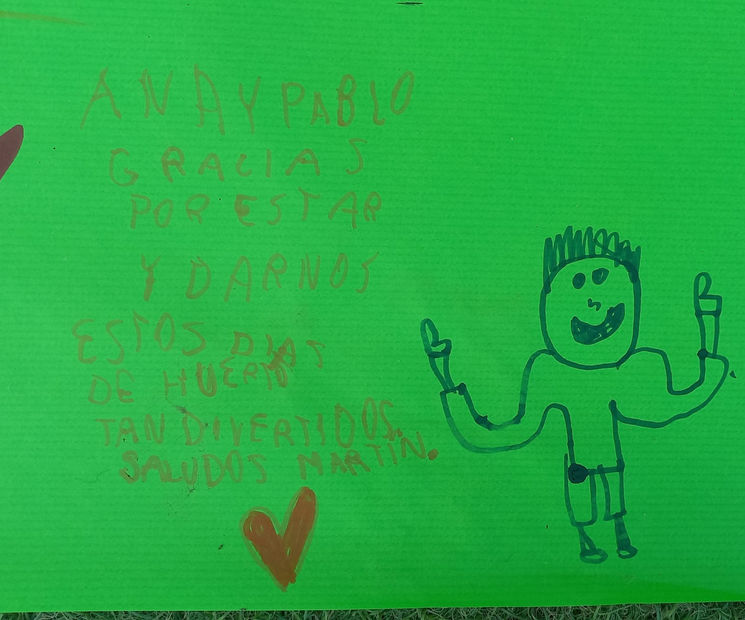 ANA Y PABLO
GRACIAS
POR ESTAR
Y DARNOS
ESTOS DIAS
DE HUERTO
TAN DIVERTIDOS.
SALUDOS MARTIN.